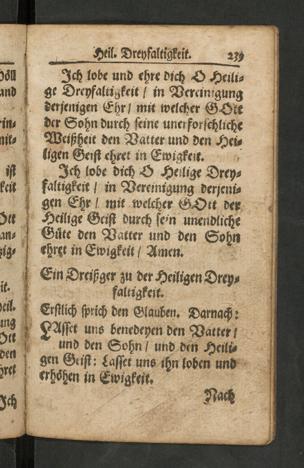 Heil. Dreyfaltigkeit. 239
Ich lobe und ehre dich O Heili-
ge Dreyfaltigkeit / in Vereinigung
derjenigen Ehr / mit welcher GOtt
der Sohn durch seine unerforschliche
Weißheit den Vatter und den Hei-
ligen Geist ehret in Ewigkeit.
Ich lobe dich O Heilige Drey-
faltigkeit / in Vereinigung derjeni-
gen Ehr / mit welcher GOtt der
Heilige Geist durch sein unendliche
Güte den Vatter und den Sohn
ehret in Ewigkeit / Amen.
Ein Dreißger zu der Heiligen Drey-
faltigkeit.
Erstlich sprich den Glauben. Darnach:
LAsset uns benedeyen den Vatter /
und den Sohn / und den Heili-
gen Geist: Lasset uns ihn loben und
erhöhen in Ewigkeit.
Nach